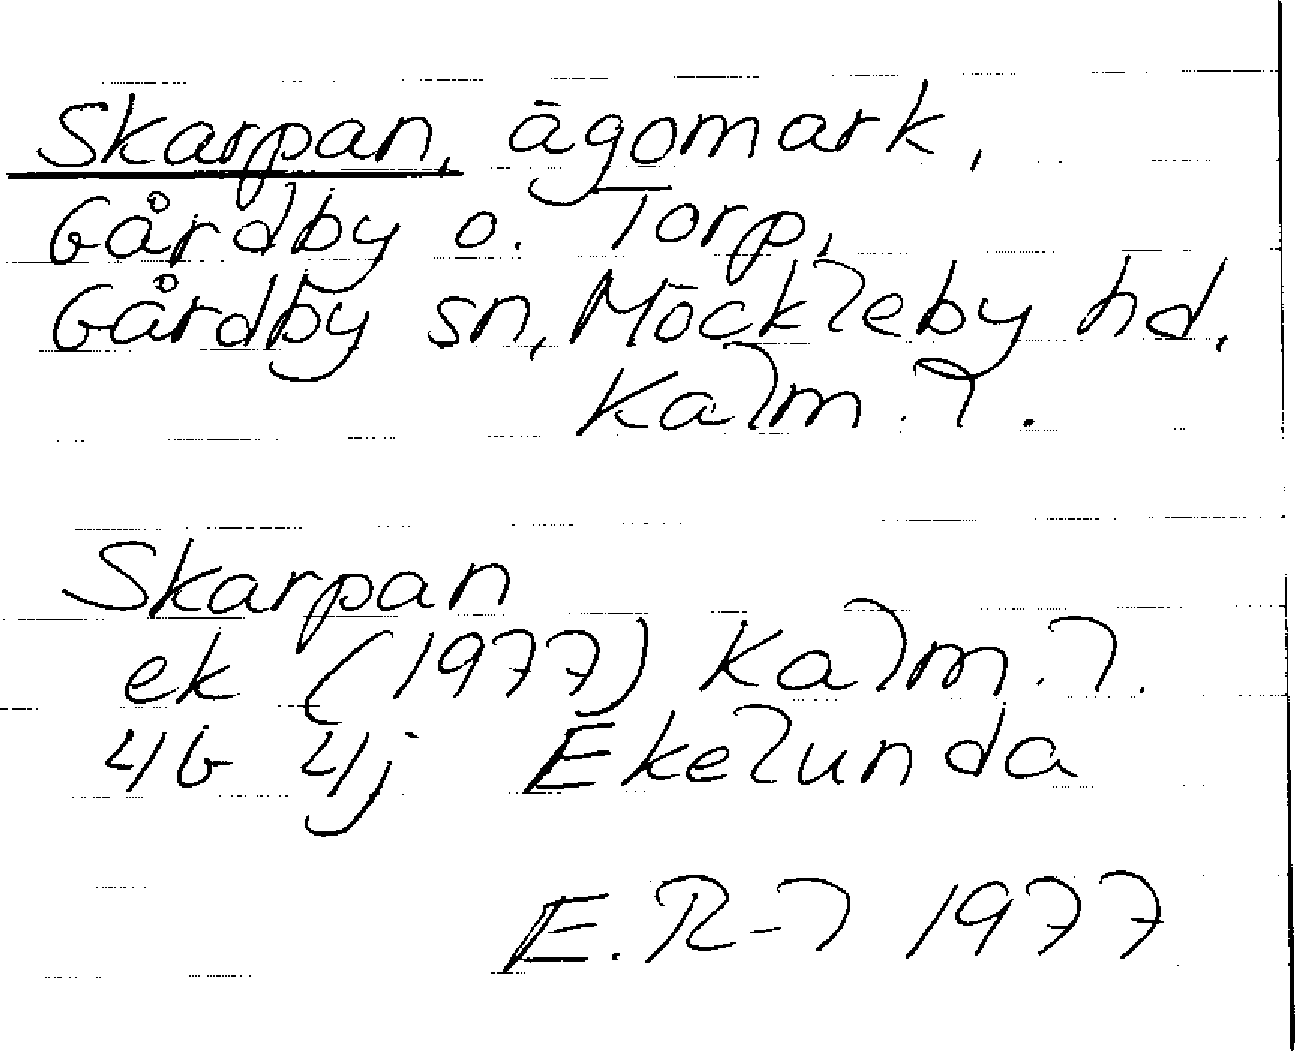 Skarpan, ägomark,
Gårdby o. Torp,
Gårdby sn, Möckleby hd.
Kalm. l.
Skarpan
ek (1977) Kalm. l.
4G 4j Ekelunda
E. R-l 1977